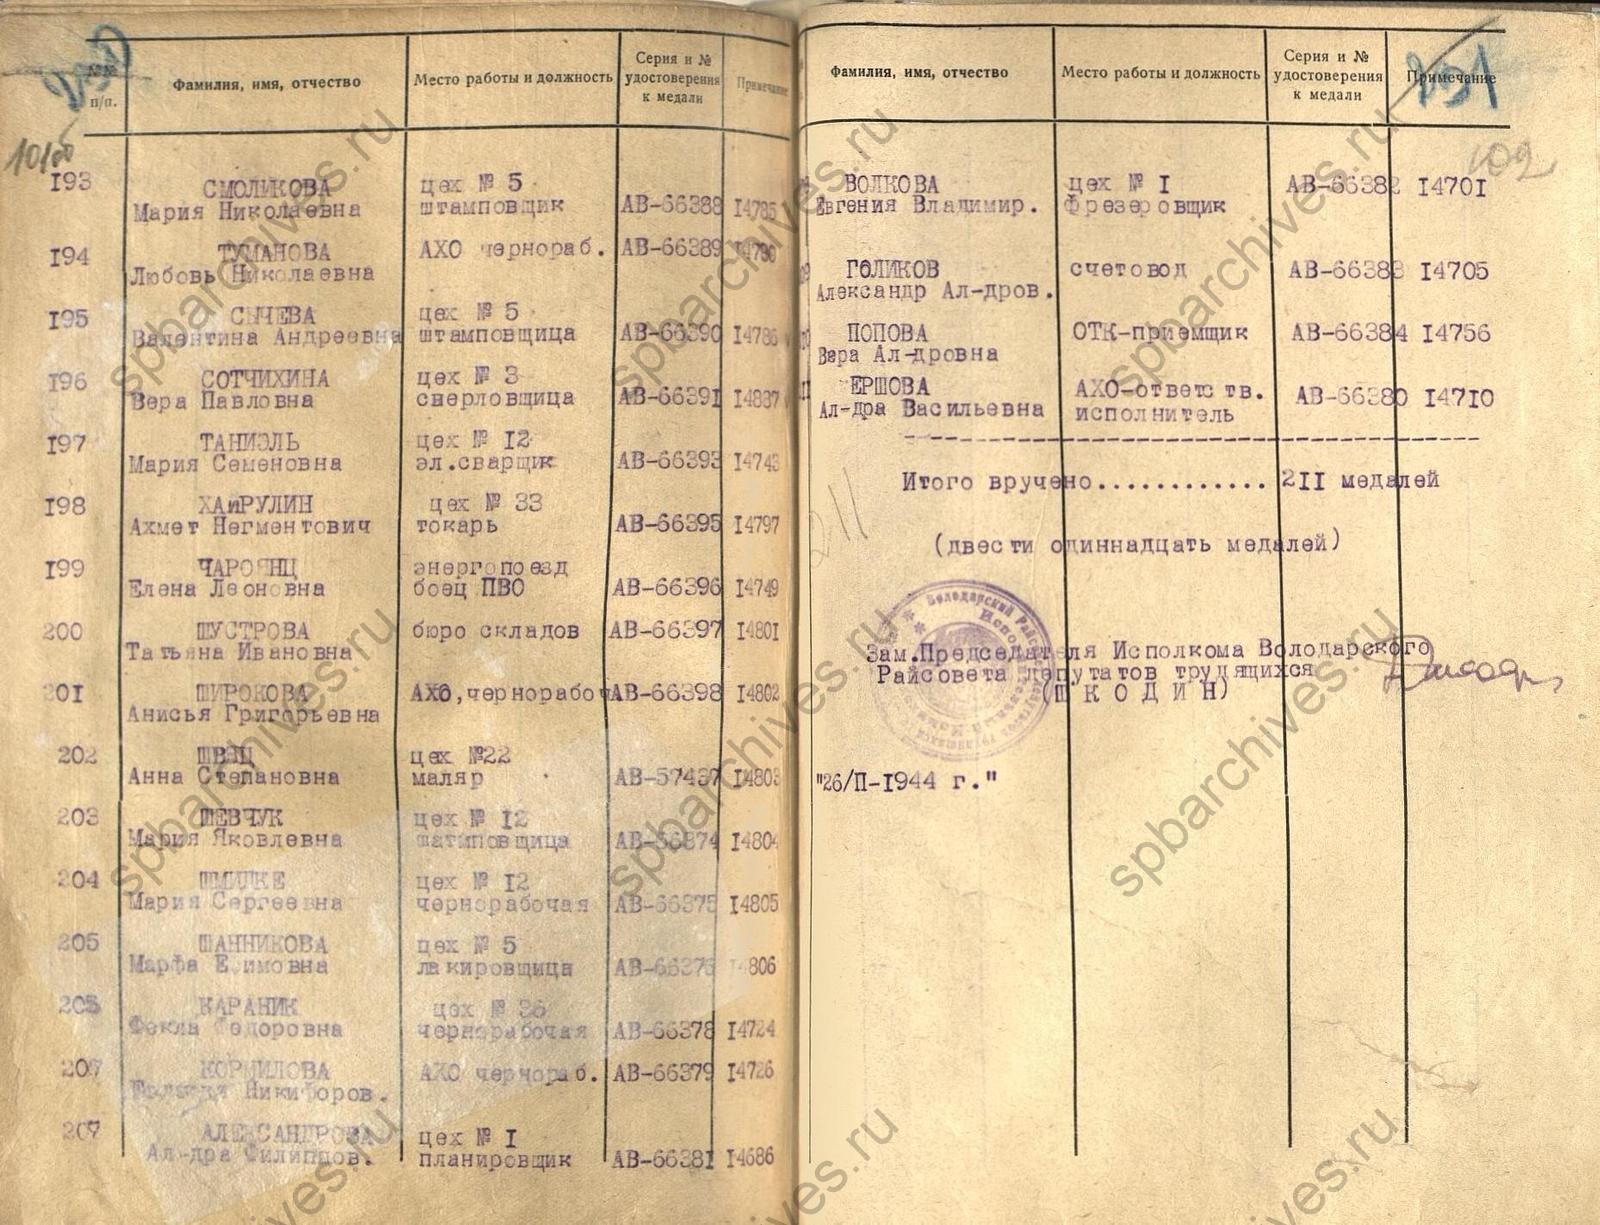 №№ п/п.
Фамилия, имя, отчество
Место работы и должность
Серия и № удостоверения к медали
Примечание
193 СМОЛИКОВА цех № 5
Мария Николаевна штамповщик АВ-66388 14785
194 ТУМАНОВА АХО чернораб. АВ-66389 14790
Любовь Николаевна
195 СЫЧЕВА цех № 5
Валентина Андреевна штамповщица АВ-66390 14786
196 СОТЧИХИНА цех № 3
Вера Павловна сверловщица АВ-66391 14887
197 ТАНИЭЛЬ цех № 12
Мария Семеновна эл.сварщик АВ-66393 14743
198 ХАЙРУЛИН цех № 33
Ахмет Негментович токарь АВ-66395 14797
199 ЧАРОЯНЦ энергопоезд
Елена Леоновна боец ПВО АВ-66396 14749
200 ШУСТРОВА бюро складов АВ-66397 14801
Татьяна Ивановна
201 ШИРОКОВА АХО,чернорабоч АВ-66398 14802
Анисья Григорьевна
202 ШВЕЦ цех №22
Анна Степановна маляр АВ-57437 14803
203 ШЕВЧУК цех № 12
Мария Яковлевна шатмповщица АВ-66374 14804
204 ШМИДКЕ цех № 12
Мария Сергеевна чернорабочая АВ-66375 14805
205 ШАННИКОВА цех № 5
Марфа Ефимовна лакировщица 14806
КАРАНИК цех № 36
Фекла Федоровна чернорабочая АВ-66378 14724
207 КОРНИЛОВА АХО чернораб. АВ-66379 14726
Никифоров.
207 АЛЕКСАНДРОВА цех № 1
Ал-дра Филиппов. планировщик АВ-66381 14686
Фамилия, имя, отчество
Место работы и должность
Серия и № удостоверения к медали
Примечание
102
ВОЛКОВА цех № 1 АВ-66382 14701
Евгения Владимир. Фрезеровщик
ГОЛИКОВ счетовод АВ-66383 14705
Александр Ал-дров.
ПОПОВА ОТК-приемщик АВ-66384 14756
Вера Ал-дровна
ЕРШОВА АХО-ответств. АВ-66380 14710
Ал-дра Васильевна исполнитель
Итого вручено............ 211 медалей
211
(двести одиннадцать медалей)
Зам.Председателя Исполкома Володарского
Райсовета депутатов трудящихся
(Ш К О Д И Н)
"26/П-1944 г."
spbarchives.ru